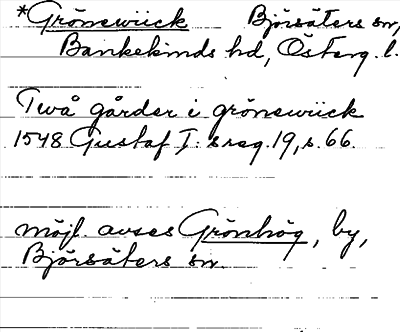 *Grönewiick Björsäters sn,
Bankekinds hd, Österg. l.
Twå gårder i grönewiick
1548 Gustaf I:s reg. 19, s. 66.
möjl. avses Grönhög, by,
Björsäters sn.